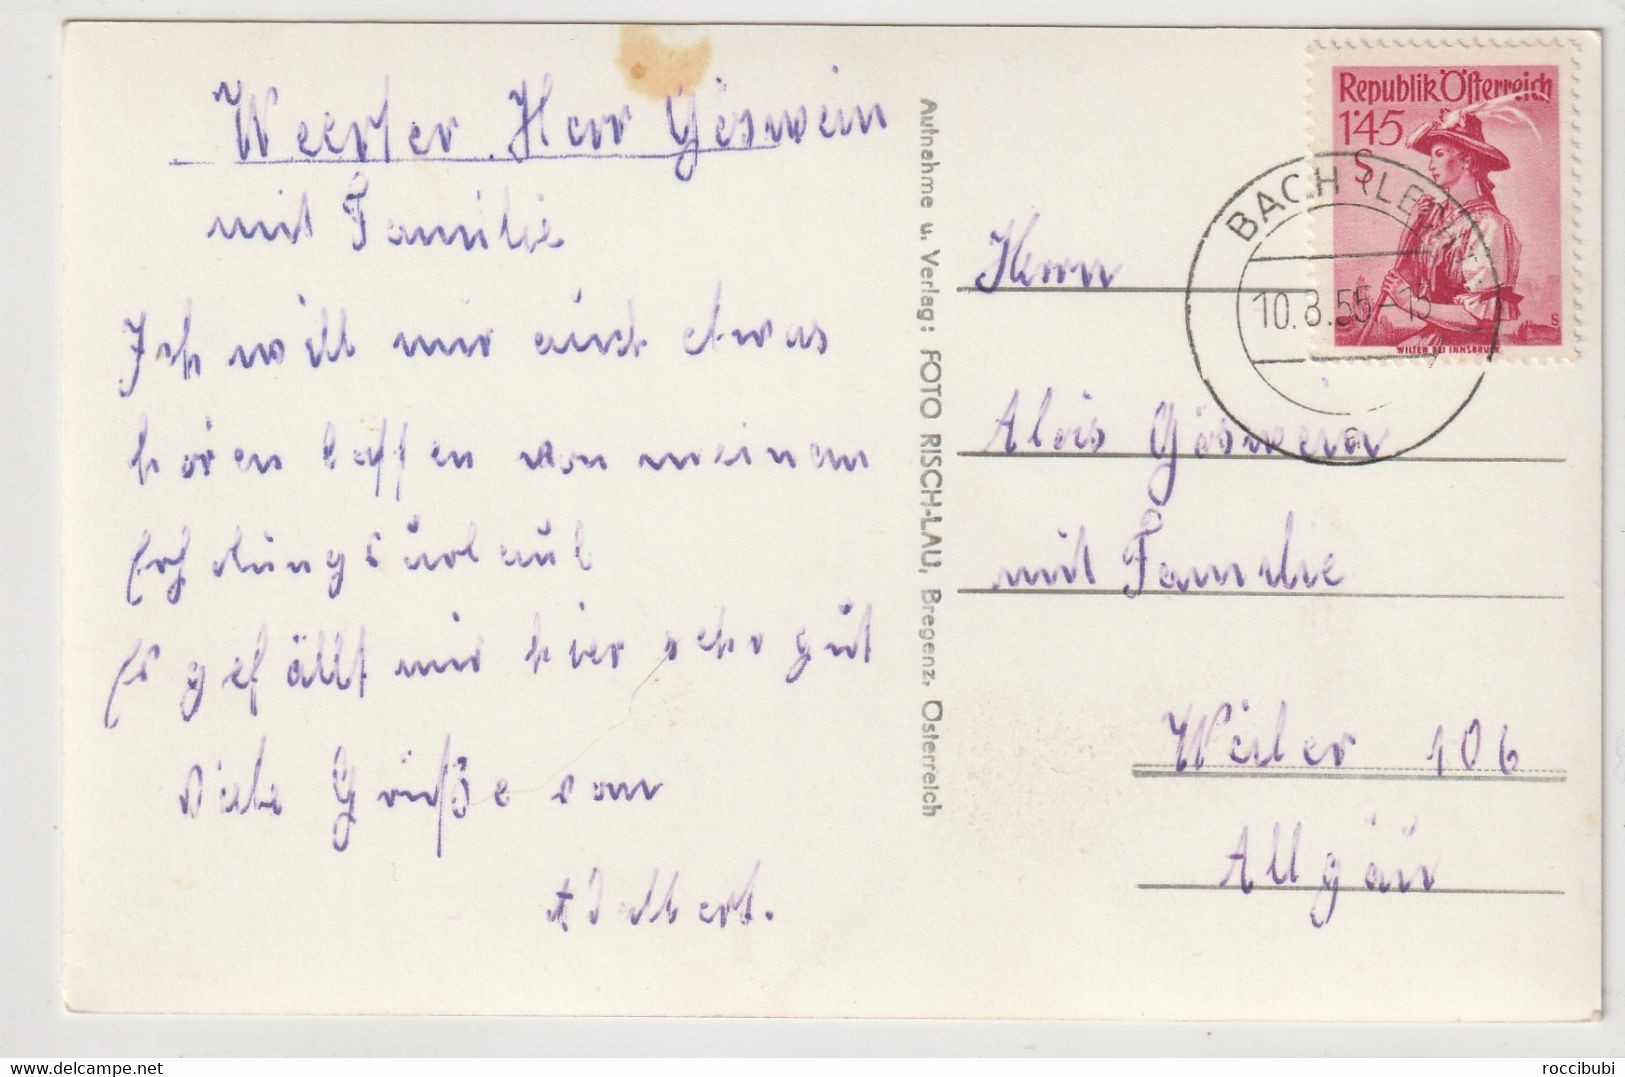 Weerter Herr Göswein
mit Familie
Ich will mir auch etwas
hören lassen von meinem
Erhohlungsurlaub
Es gefällt mir hier sehr gut
Viele Grüße von
Adalbert.
Aufnahme u. Verlag: FOTO RISCH-LAU, Bregenz, Österreich
Republik Österreich
1'45
S
WILTEN BEI INNSBRUCK
BACH (LECHTAL)
10.8.55-13
a
Herrn
Alois Göswein
mit Familie
Weiler 106
Allgäu
delcampe.net
roccibubi